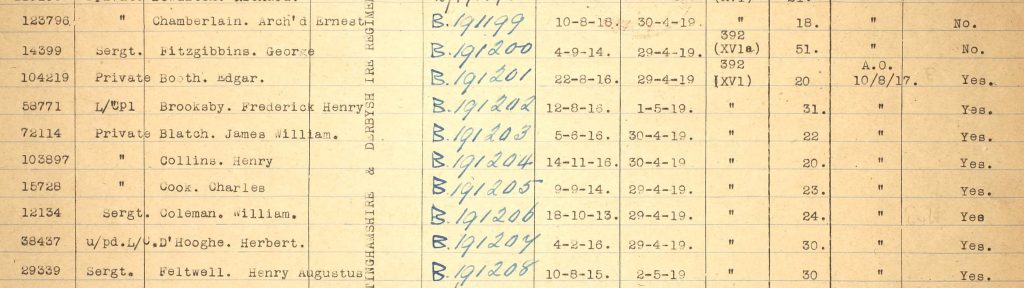 123796 " Chamberlain. Arch'd Ernest B.191199 10-8-16. 30-4-19. " 18. " No.
392
14399 Sergt. Fitzgibbins. George B.191200 4-9-14. 29-4-19. (XV1a) 51. " No.
392 A.O.
104219 Private Booth. Edgar. B.191201 22-8-16. 29-4-19 [XV1) 20 10/8/17. Yes.
58771 L/Cpl Brooksby. Frederick Henry B.191202 12-8-16. 1-5-19. " 31. " Yes.
72114 Private Blatch. James William. B.191203 5-6-16. 30-4-19. " 22 " Yes.
103897 " Collins. Henry B.191204 14-11-16. 30-4-19. " 20. " Yes.
15728 " Cook. Charles B.191205 9-9-14. 29-4-19. " 23. " Yes.
12134 Sergt. Coleman. William. B.191206 18-10-13. 29-4-19. " 24. " Yes
38437 u/pd.L/C. D'Hooghe. Herbert. B.191207 4-2-16. 29-4-19. " 30. " Yes.
29339 Sergt. Feltwell. Henry Augustus B.191208 10-8-15. 2-5-19 " 30 " Yes.
TINGHAMSHIRE & DERBYSH IRE REGIME